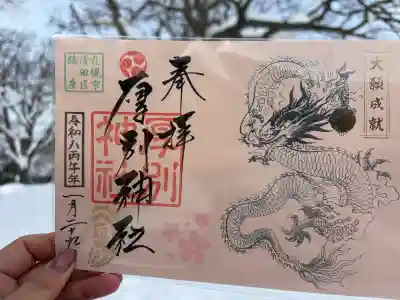 大願成就
奉拝
厚別神社
厚別
神社
札幌市
清田区
令和八丙午年
一月二十九日